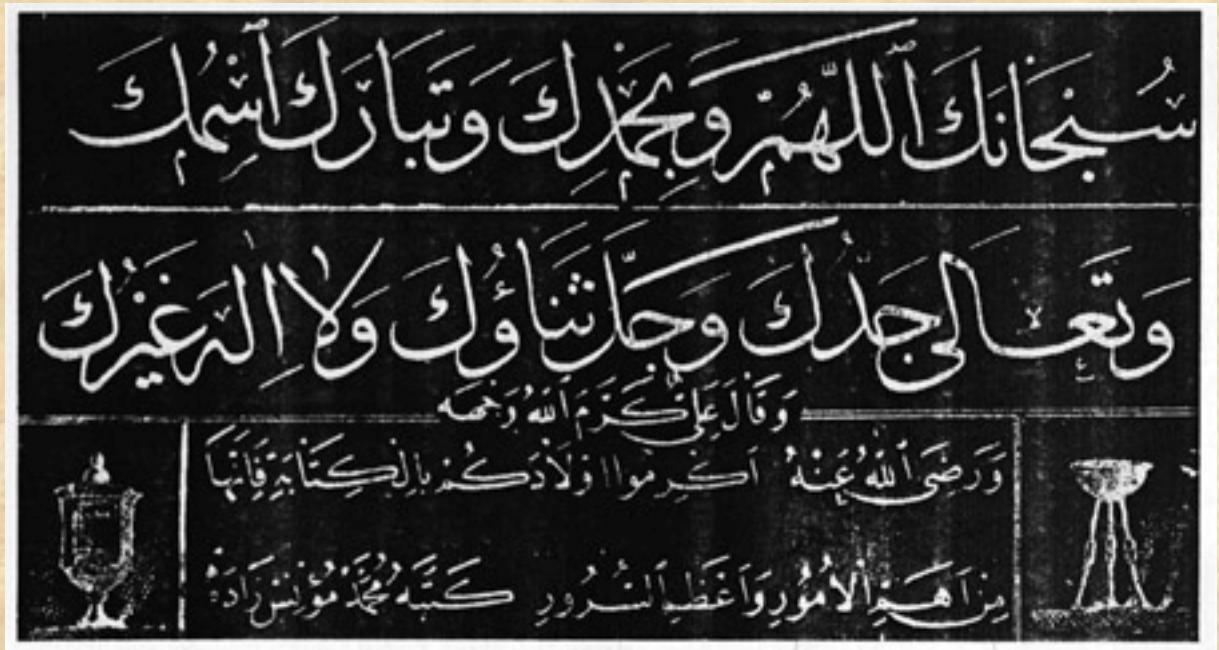 سُبْحَانَكَ ٱللّٰهُمَّ وَبِحَمْدِكَ وَتَبَارَكَ ٱسْمُكَ
وَتَعَالَى جَدُّكَ وَجَلَّ ثَنَاؤُكَ وَلَا اِلٰهَ غَيْرُكَ
وَقَالَ عَلِيّ كَرَّمَ ٱللّٰهُ وَجْهَه
وَرَضَى ٱللّٰهُ عَنْهُ اَكْرِمُوا اَوْلَادَكُمْ بِالْكِتَابَةِ فَاِنَّهَا
مِنْ اَهَمِّ الْاُمُورِ وَاَعْظَمِ السُّرُورِ كَتَبَهُ مُحَمَّدْ مُؤْنِسْ زَادَه